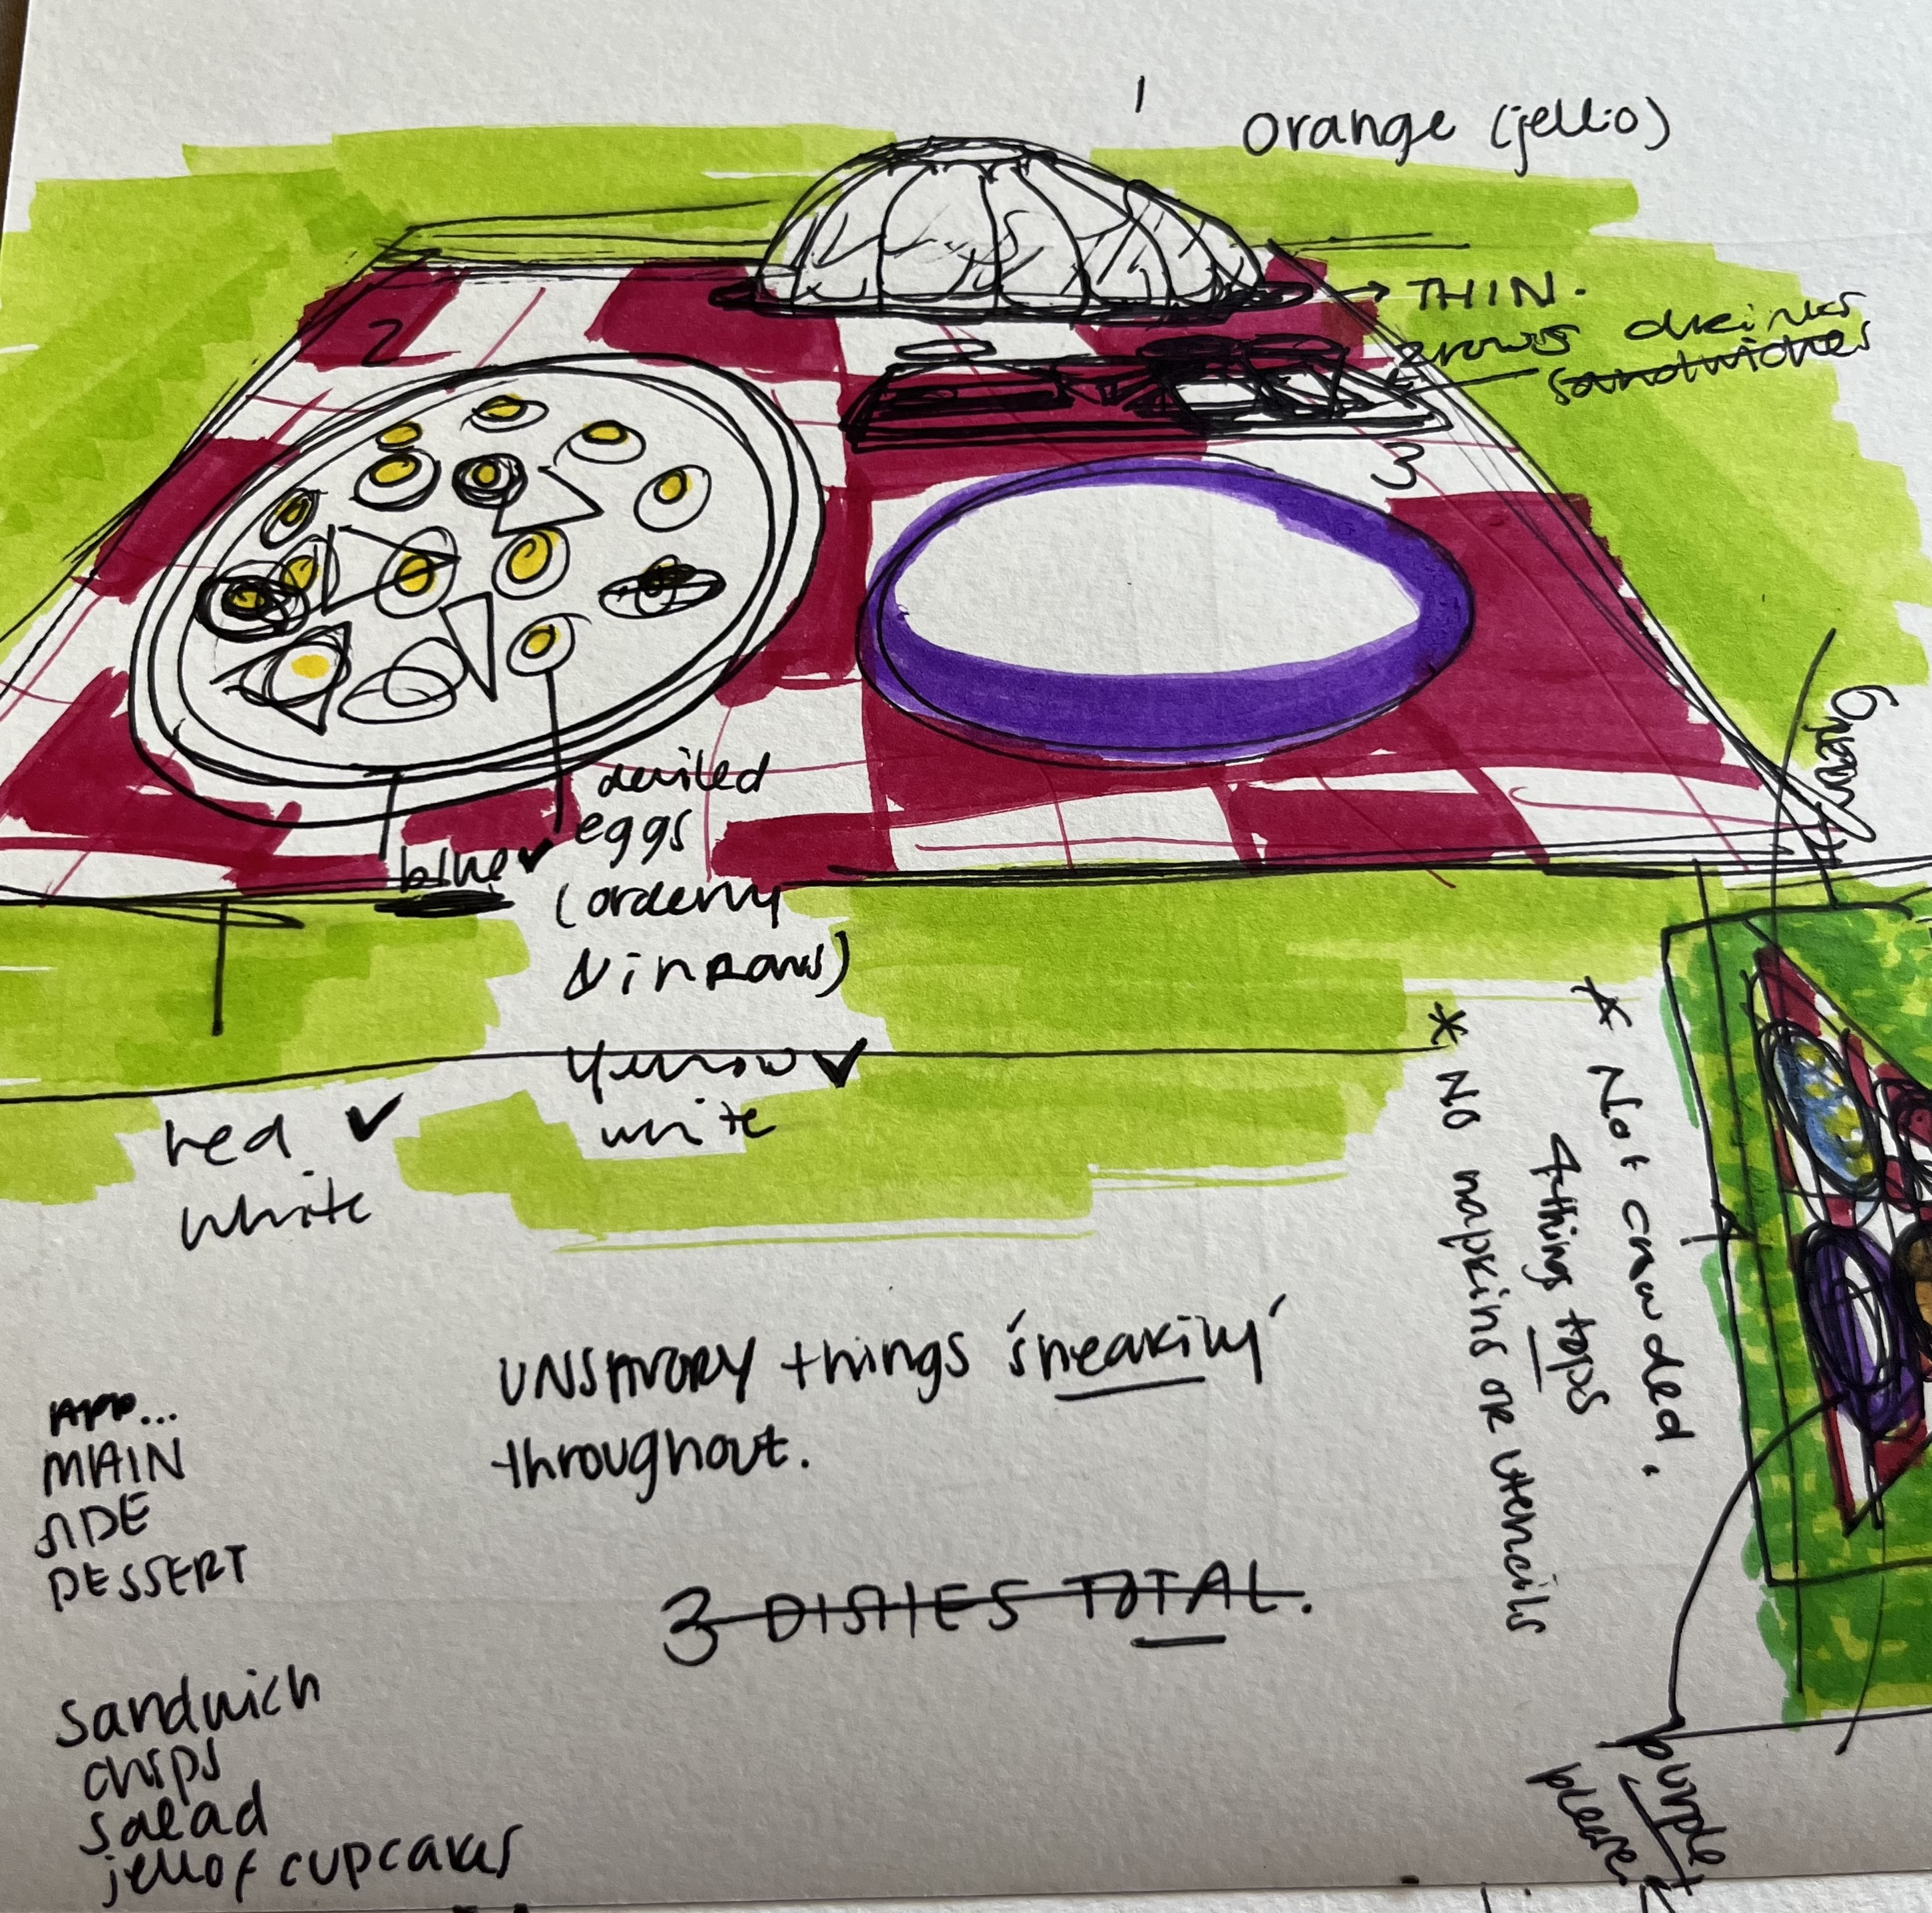 1
orange (jello)
→ THIN.
drinks
sandwiches
2
3
green
deviled
eggs
blue ✓
(orderly
in rows)
yellow ✓
white
red ✓
white
* Not crowded.
4 things tops
* No napkins or utencils
UNSAVORY things 'sneaking'
throughout.
APP...
MAIN
SIDE
DESSERT
3 DISHES TOTAL.
sandwich
chips
salad
jello & cupcakes
purple
please